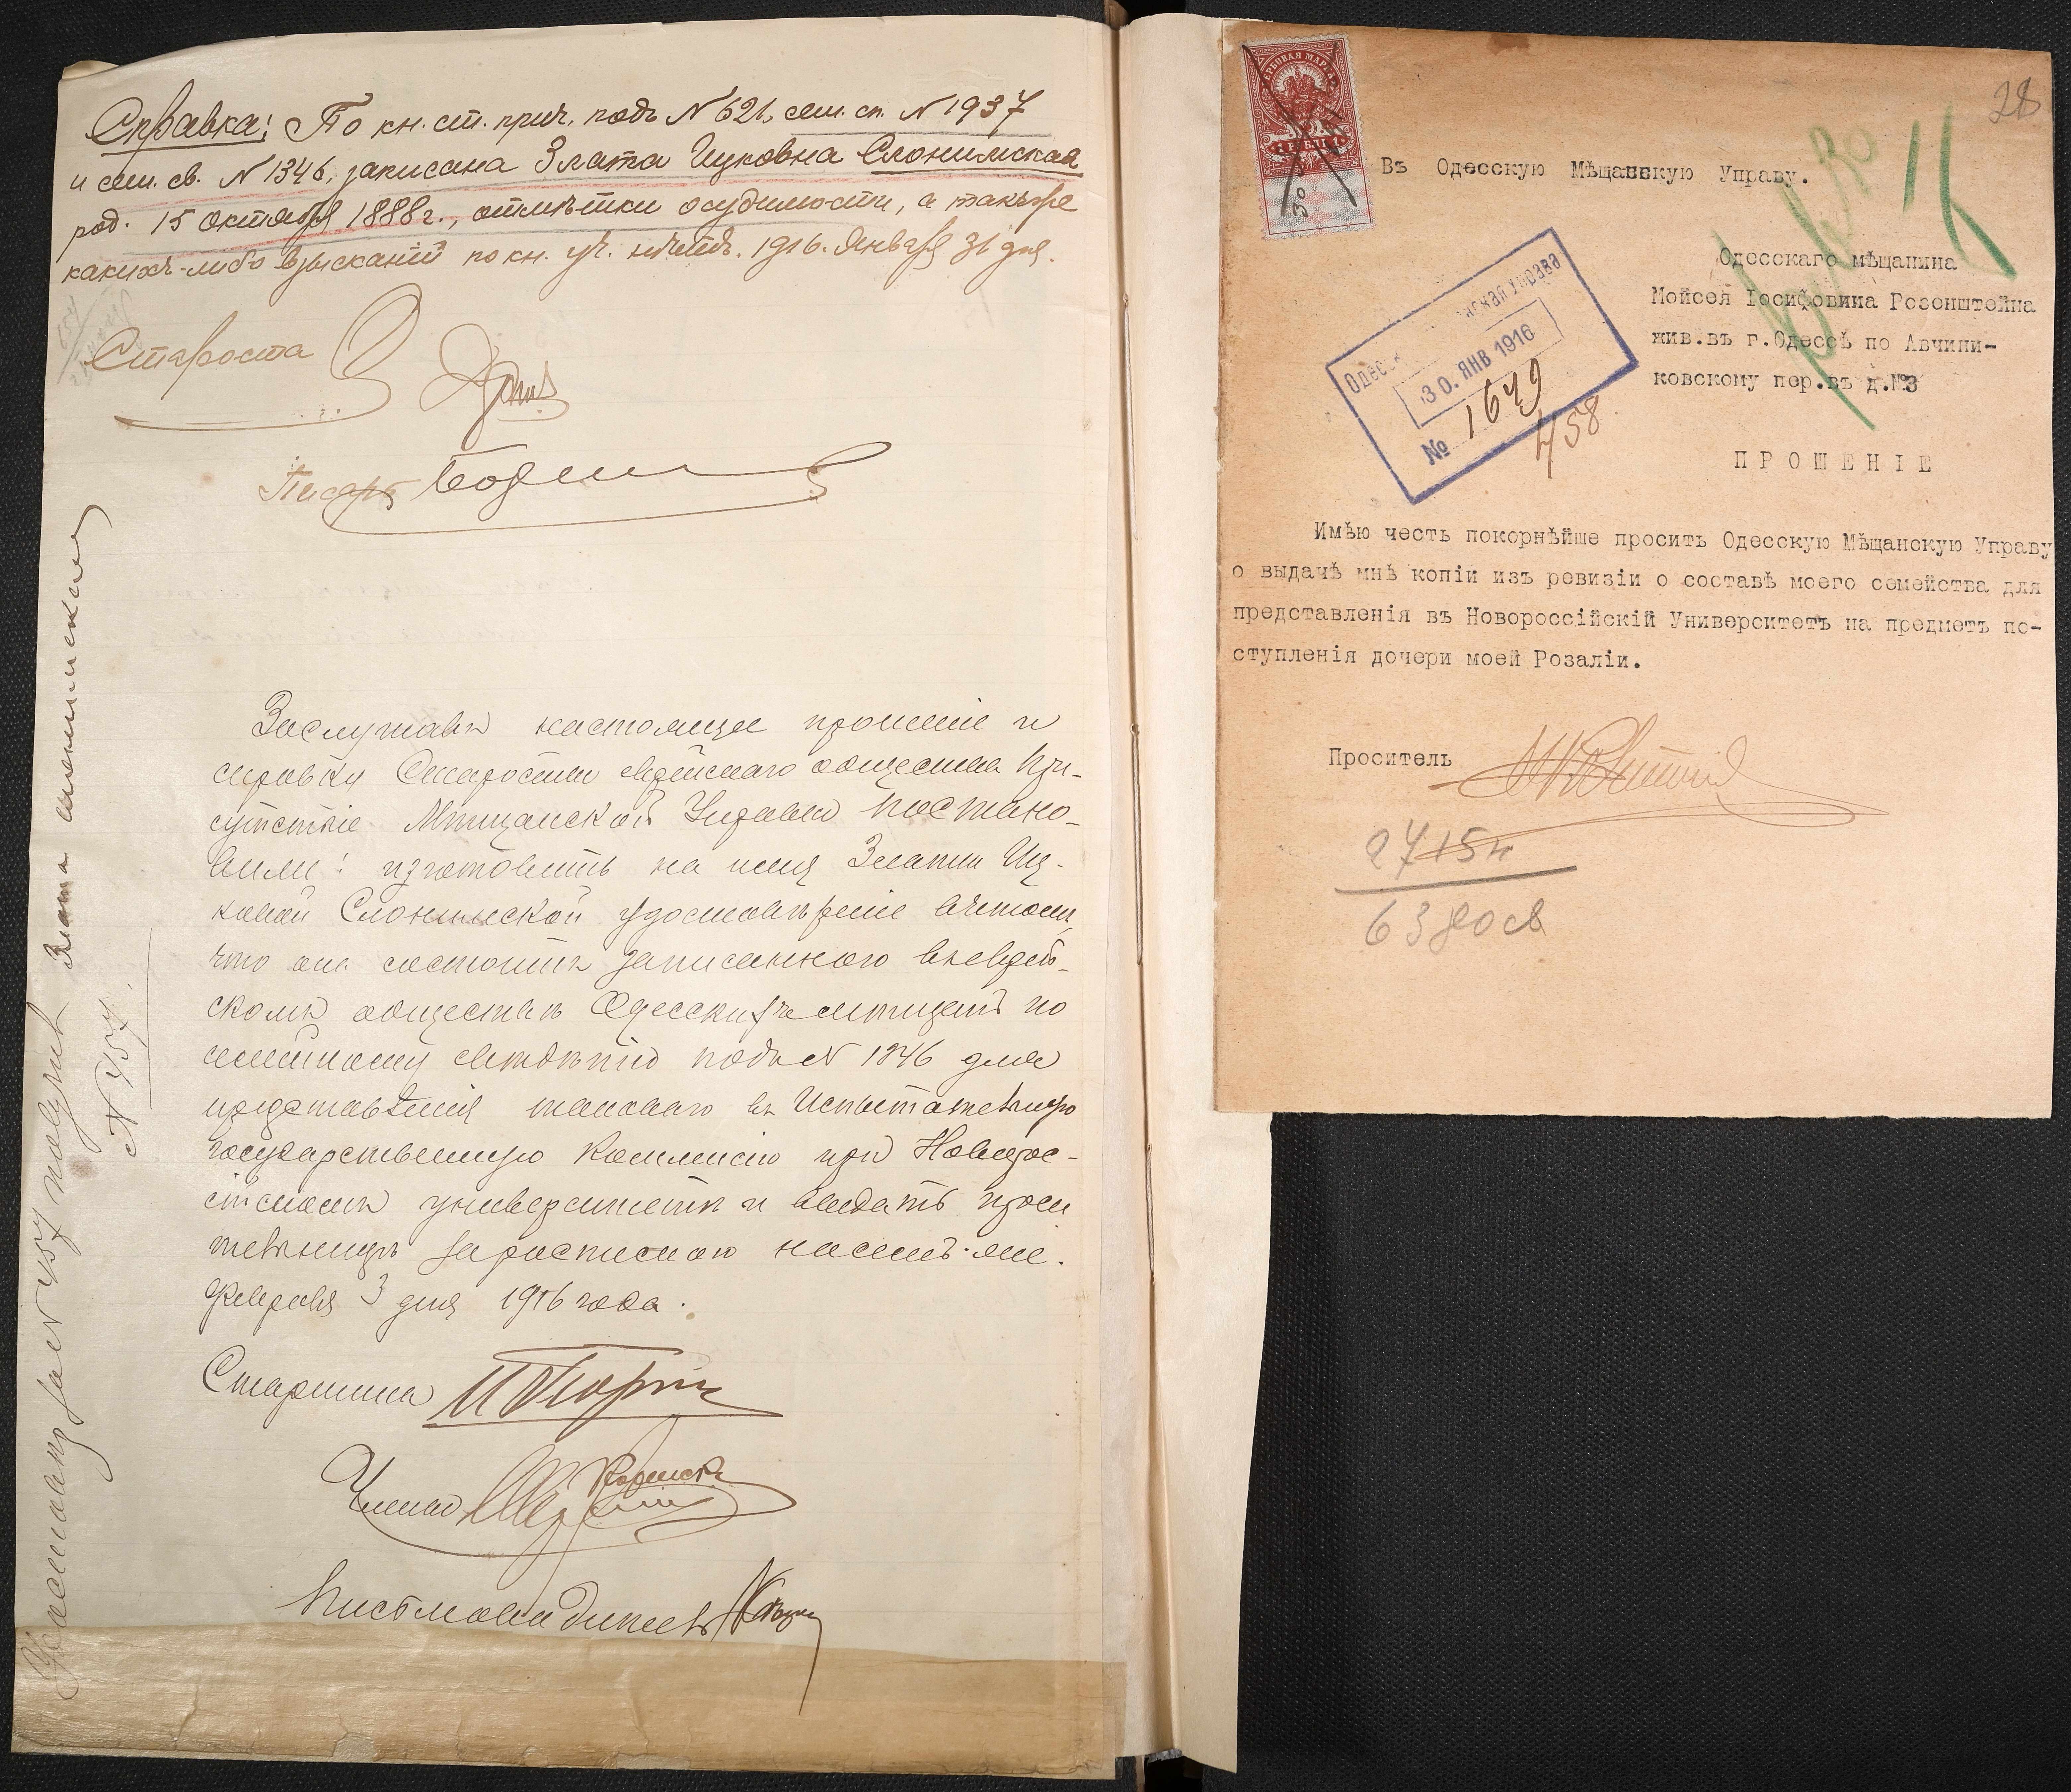 Справка: По кн. ст. прич. подъ N 621, сем. сп. N 1937
и сем. св. N 1346, записана Злата Ицковна Слонимская
род. 15 октября 1888 г., отмѣтки осудимости, а также
какихъ-либо взысканій по кн. уч. нѣтъ. 1916. Января 31 дня.
Староста
Писарь
Заслушавъ настоящее прошеніе и
справку Старосты еврейскаго общества При-
сутствіе Мѣщанской Управы Постано-
вили: изготовить на имя Златы Иц-
ковой Слонимской удостовѣреніе вътомъ,
что она состоитъ записанною въ еврей-
скомъ обществѣ Одесскихъ мѣщанъ по
семейному свидѣтію подъ N 1346 для
представленія таковаго въ Испытательную
государственную Коммисію при Новорос-
сійскомъ университетѣ и выдать проси
тельницѣ
Февраля 3 дня 1916 года.
Старшина
Члены
Письмоводитель
N 457.
за N 457 получила Злата Слонимская
28
ГЕРБОВАЯ МАРКА
Въ Одесскую Мѣщанскую Управу.
Одесскаго мѣщанина
Мойсея Іосифовича Розенштейна
жив.въ г.Одессѣ по Авчини-
ковскому пер.въ д.№3
30. ЯНВ 1916
№ 1649
458
ПРОШЕНІЕ
Имѣю честь покорнѣйше просить Одесскую Мѣщанскую Управу
о выдачѣ мнѣ копіи изъ ревизіи о составѣ моего семейства для
представленія въ Новороссійскій Университетъ на предметъ по-
ступленія дочери моей Розаліи.
Проситель